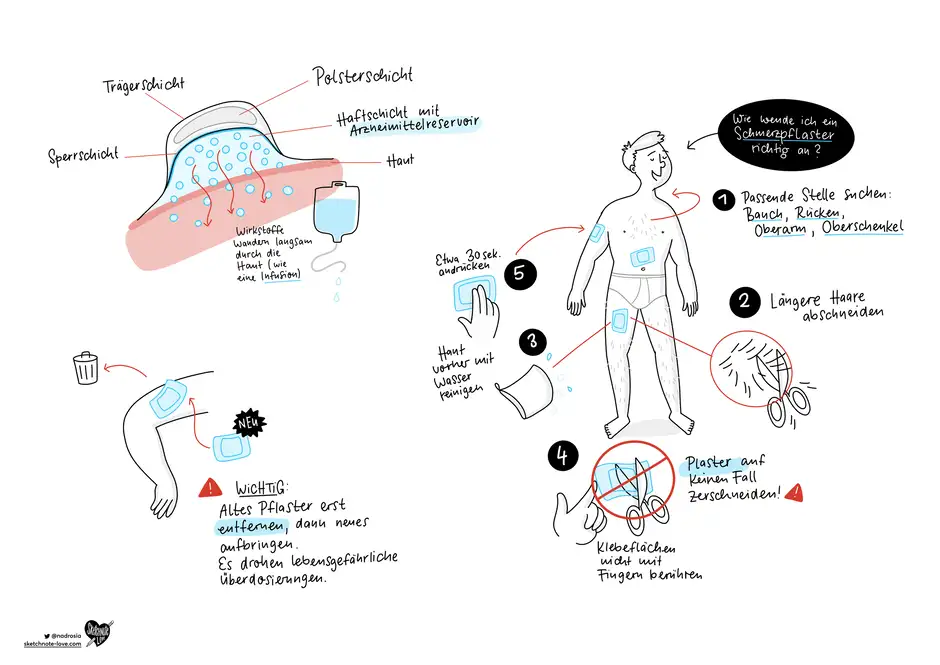 Trägerschicht
Polsterschicht
Haftschicht mit
Arzneimittelreservoir
Sperrschicht
Haut
Wirkstoffe
wandern langsam
durch die
Haut (wie
eine Infusion)
Wie wende ich ein
Schmerzpflaster
richtig an?
1 Passende Stelle suchen:
Bauch, Rücken,
Oberarm, Oberschenkel
2 Längere Haare
abschneiden
3
Haut
vorher mit
Wasser
reinigen
4
Plaster auf
keinen Fall
zerschneiden!
Klebeflächen
nicht mit
Fingern berühren
5
Etwa 30 sek.
andrücken
NEU
! WICHTIG:
Altes Pflaster erst
entfernen, dann neues
aufbringen.
Es drohen lebensgefährliche
Überdosierungen.
@nadrosia
sketchnote-love.com
Sketchnote
Love